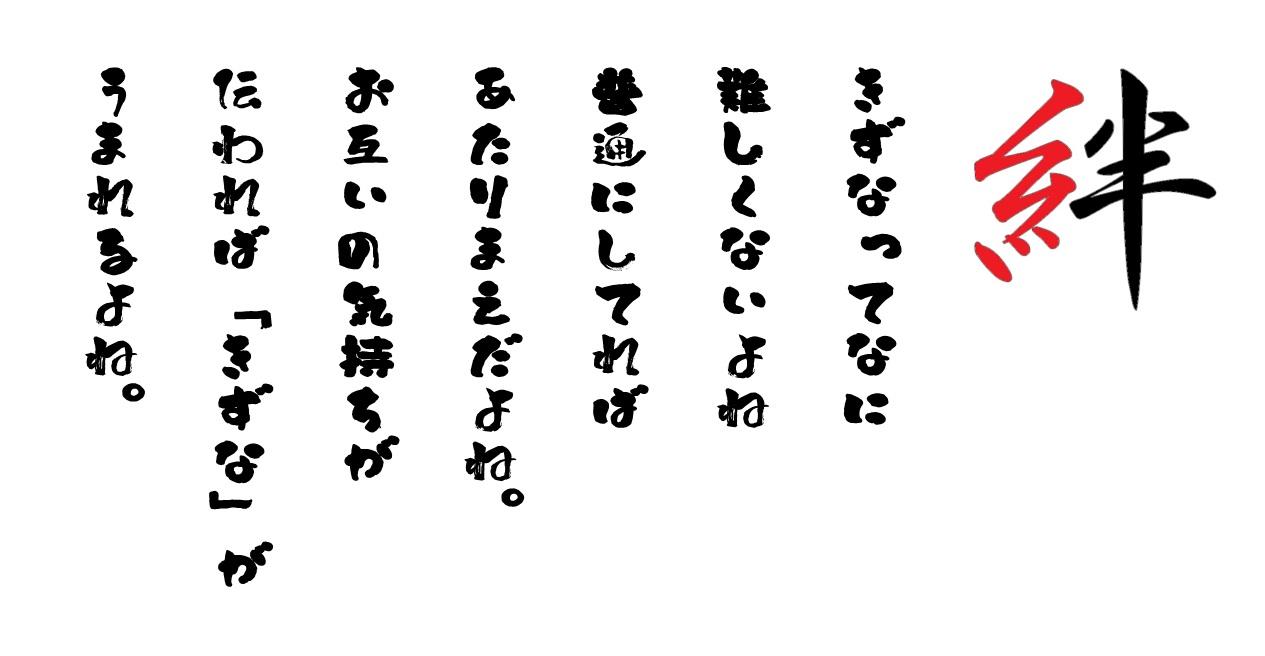 絆
きずなってなに
難しくないよね
普通にしてれば
あたりまえだよね。
お互いの気持ちが
伝われば「きずな」が
うまれるよね。